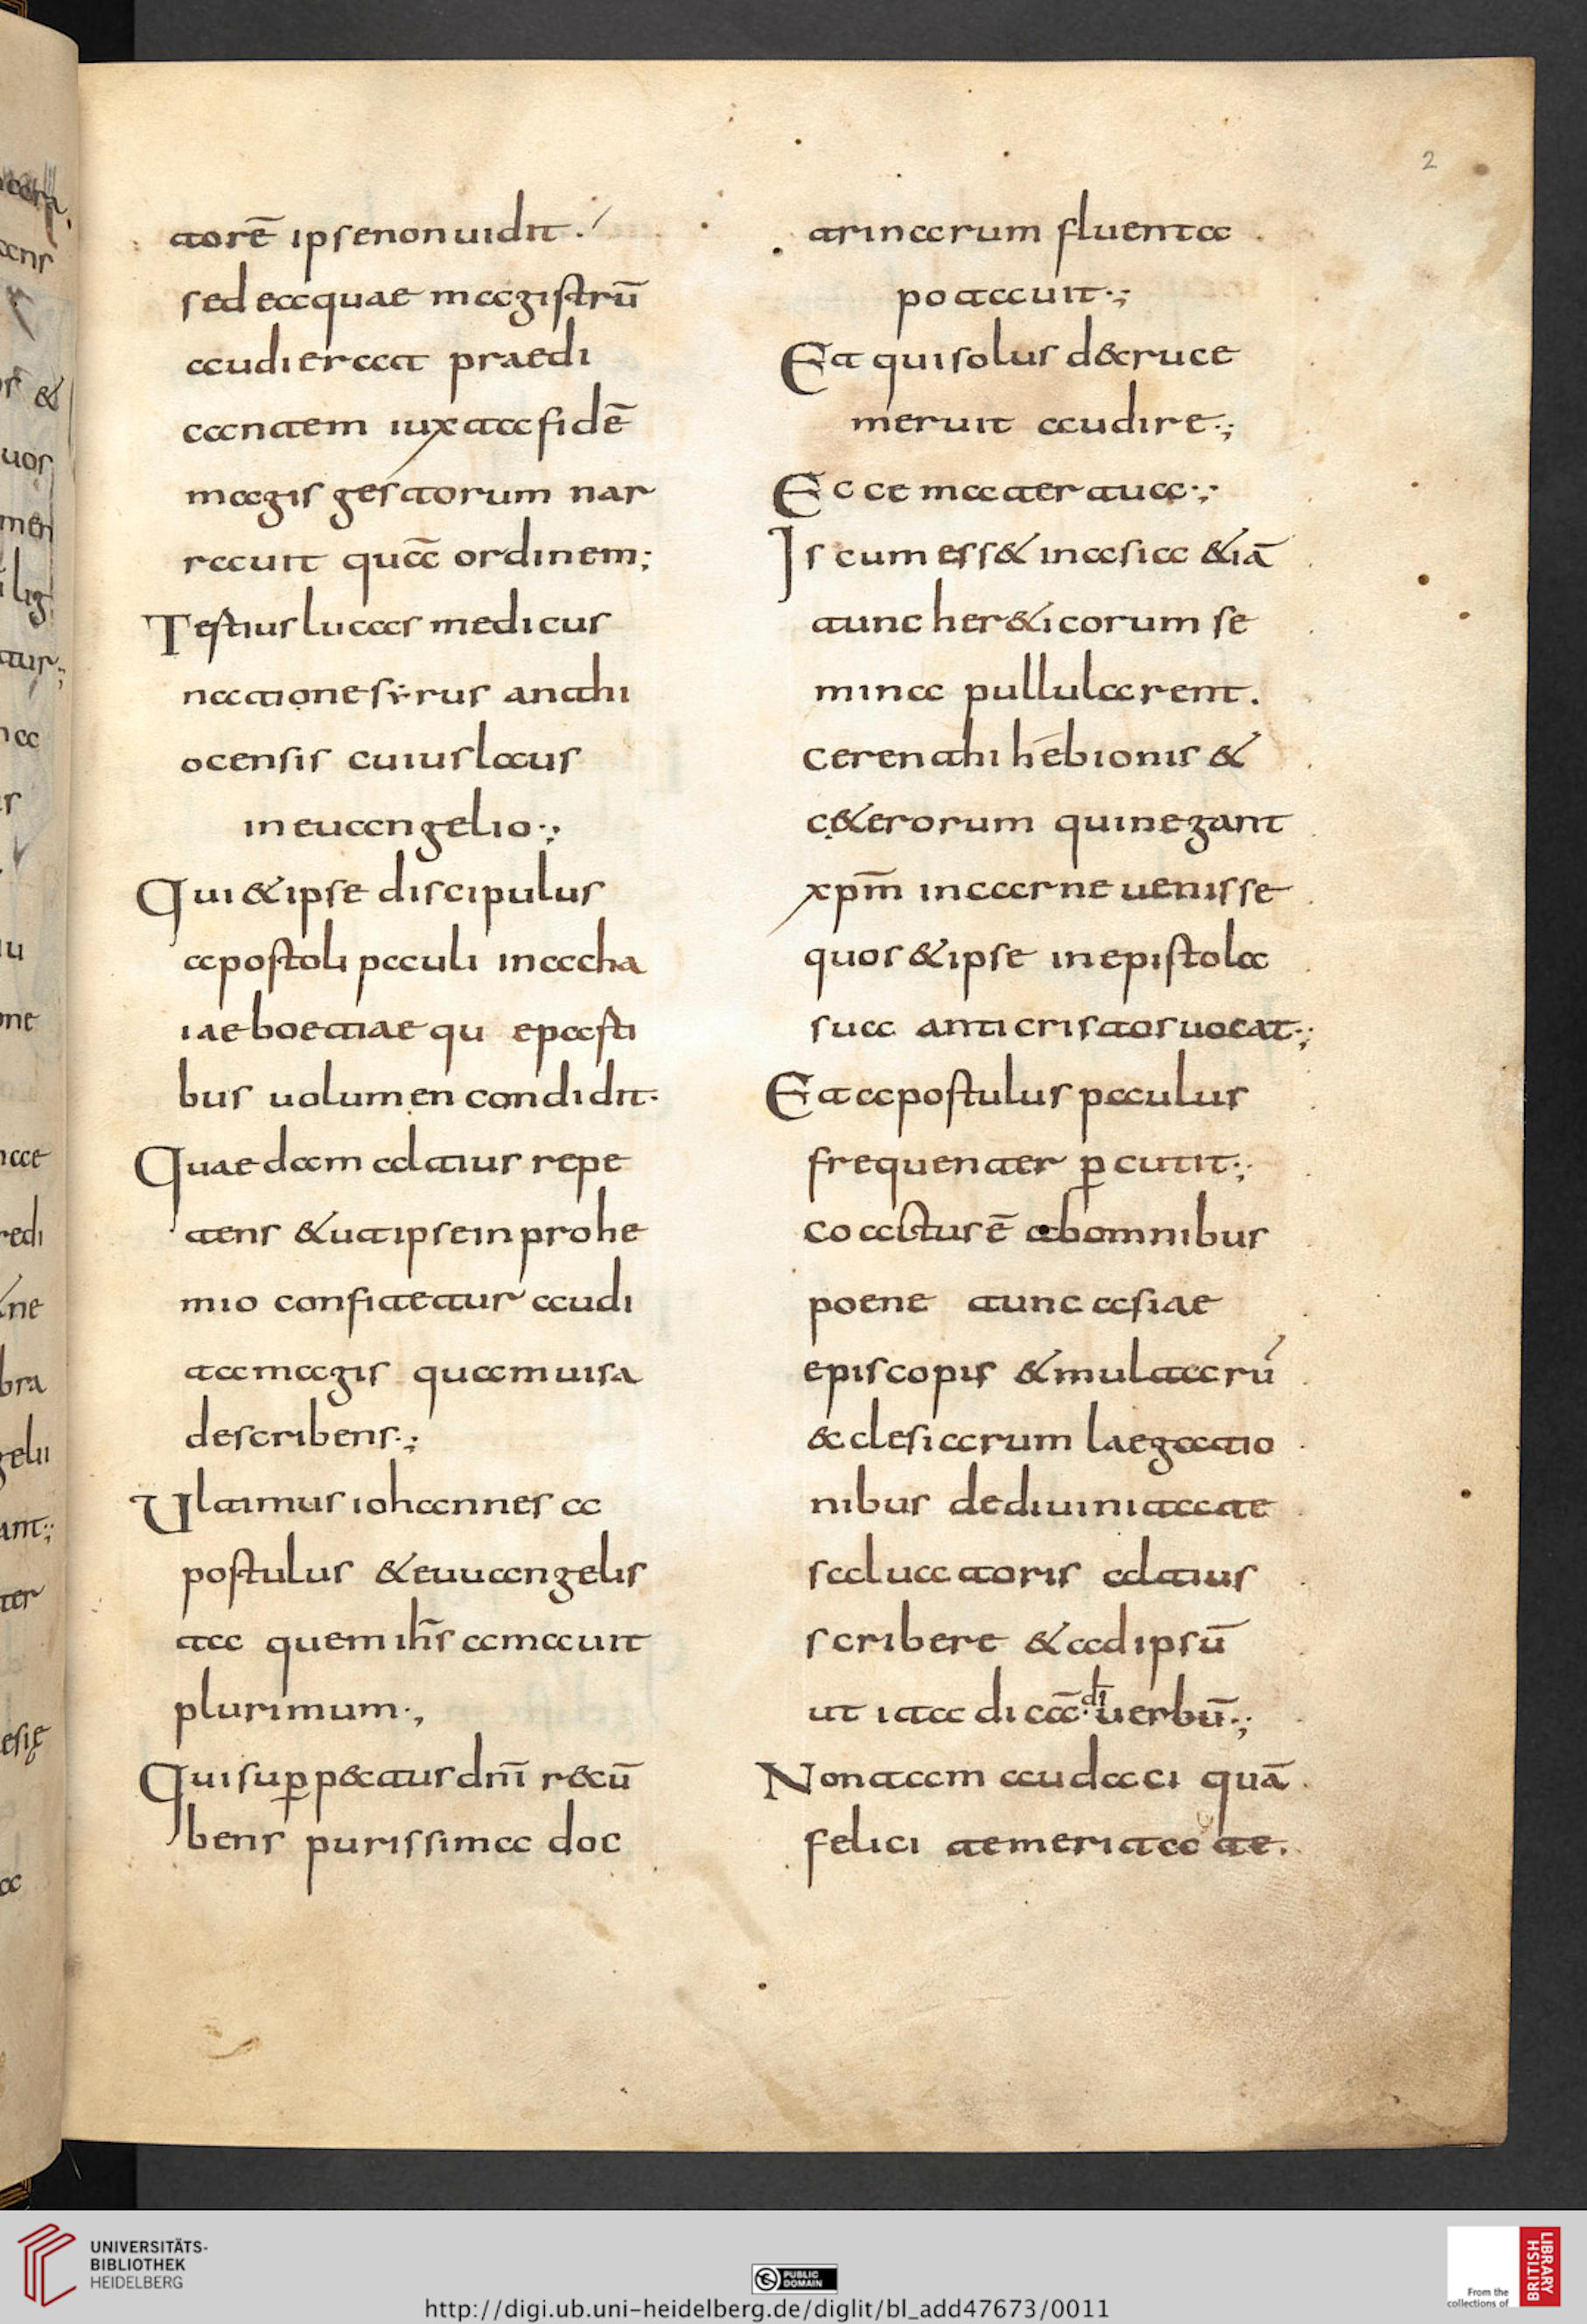 2
torē ipse non uidit.
sed ea quae magistrū
audierat praedi
cantem iuxta fidē
magis gestorum nar
rauit quā ordinem;
Tertius lucas medicus
natione syrus anthi
ocensis cuius laus
in euangelio.;
Qui & ipse discipulus
apostoli pauli in acha
iae boetiae qu epasti
bus uolumen condidit.
Quaedam altius repe
tens & ut ipse in prohe
mio confitetur audi
ta magis quam uisa
describens.;
Ultimus iohannes a
postulus & euuangelis
ta quem ih̄s amauit
plurimum.,
Qui sup pectus dn̄i recū
bens purissima doc
trinarum fluenta
potauit.;
Et qui solus de cruce
meruit audire.;
Ecce mater tua.;
Is cum ess& in asia &iā
tunc her&icorum se
mina pullularent.
cerenthi hebionis &
c&erorum qui negant
xpm̄ in carne uenisse
quos & ipse in epistola
sua anticristos uocat.;
Et apostulus paulus
frequenter p cutit.;
coactus ē ab omnibus
poene tunc asiae
episcopis & multarū
&clesiarum laegatio
nibus de diuinitate
saluatoris altius
scribere & ad ipsū
ut ita dicā di uerbū.;
Non tam audaci quā
felici temeritate.
UNIVERSITÄTS-
BIBLIOTHEK
HEIDELBERG
PUBLIC
DOMAIN
http://digi.ub.uni-heidelberg.de/diglit/bl_add47673/0011
From the
collections of
BRITISH
LIBRARY